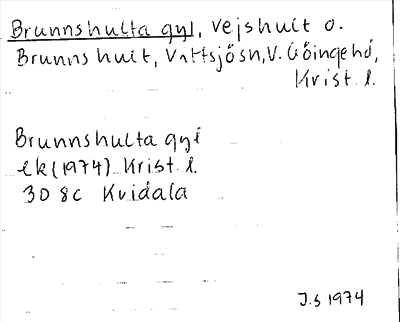 Brunnshulta gyl, Vejshult o.
Brunnshult, Vittsjösn, V. Göingehd,
Krist. l.
Brunnshulta gyl
ek (1974) Krist. l.
3D 8c Kvidala
J.S 1974